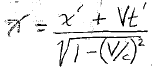 x = (x' + Vt') / √(1-(V/c)²)